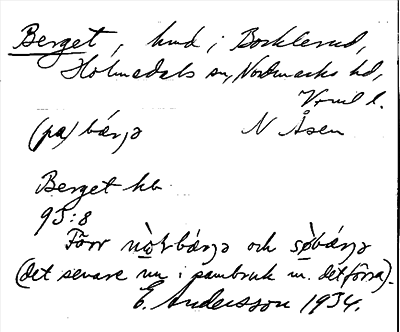 Berget, hmd i Bocklerud,
Holmedals sn, Nordmarks hd,
Vrml l.
(pa) bærjə N Åsen
Berget hb.
95:8
Förr nòḷbærjə och sø̀bærjə
(det senare nu i sambruk m. det förra).
E. Andersson 1934.